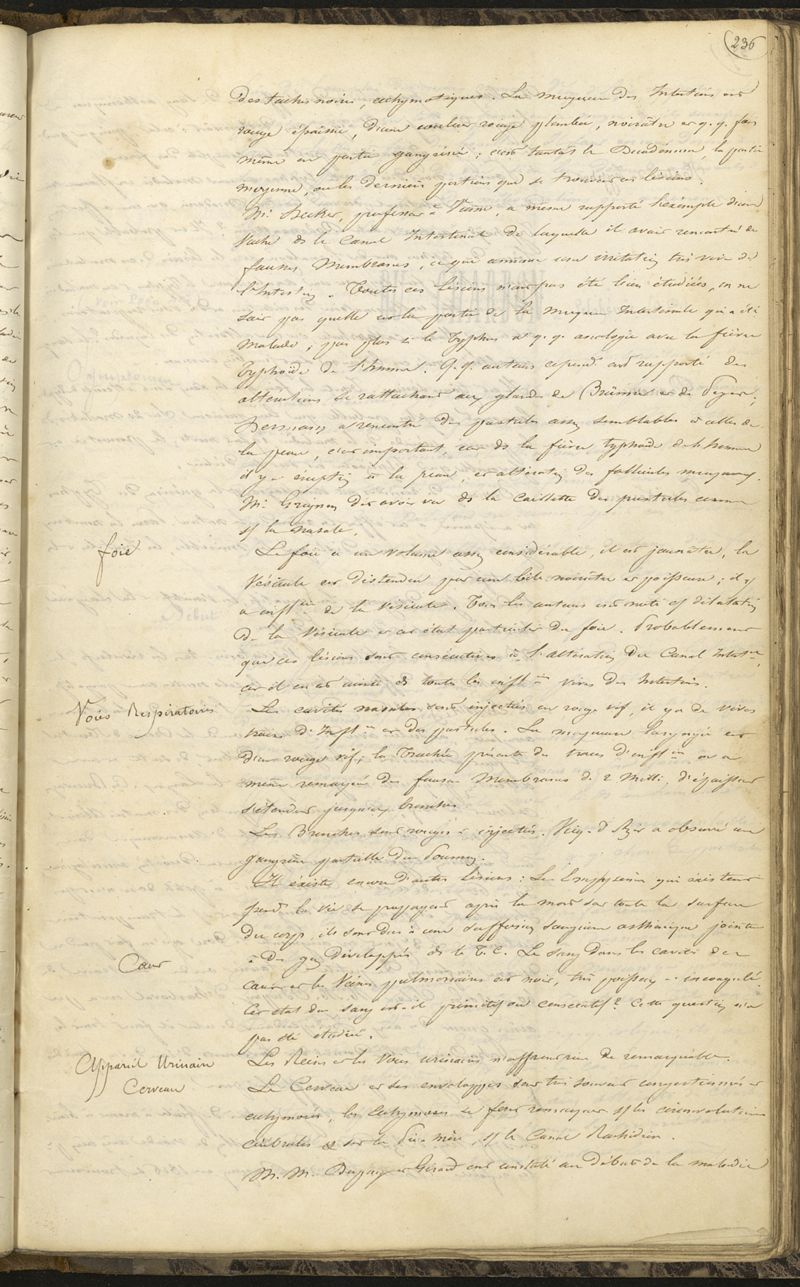 236
des taches noires, echymotiques. La muqueuse des Intestins est
rouge épaissie, d'une couleur rouge plombée, noirâtre et q.q. fois
même en partie gangrénée; c'est tantôt le Duodénum, la partie
moyenne, ou les dernières portions que se trouvent ces lésions.
Mr Becker, professeur à Vienne, a même rapporté l'exemple d'une
Vache ds le Canal Intestinal de laquelle il avait rencontré de
fausses Membranes, ce qui annonce une irritation très vive de
l'Intestin. Toutes ces lésions n'ont pas été bien étudiées, on ne
sait pas quelle est la partie de la muqueuse Intestinale qui a été
malade, pas plus si le Typhus a q.q. analogie avec la fièvre
typhoïde de l'homme. Q.q. auteurs cepend. ont rapporté des
altérations se rattachant aux glandes de Brünner et de Peyer;
a rencontré des pustules assez semblables à celles de
la peau, c'est important, car ds la fièvre typhoïde de l'homme
il y a éruption à la peau, et altération des follicules muqueux.
Mr Grognier dit avoir vu ds la Caillette des pustules comme
s/ la nasale.
foie
Le foie a un volume assez considérable, il est jaunâtre, la
Vésicule est distendue par une bile noirâtre et poisseuse; il y
a inflon de la Vésicule. Tous les auteurs ont noté c/ dilatation
de la Vésicule et cet état particulier du foie. Probablement
que ces lésions sont consécutives à l'altération du Canal Intestal,
car il en est ainsi ds toutes les inflons vives des Intestins.
Voies Respiratoires
Les cavités nasales sont injectées en rouge vif, il y a de vives
traces d'Inflon et des pustules. La muqueuse laryngée est
d'un rouge vif; la Trachée présente des traces d'inflon on a
même remarqué des fausses Membranes de 2 Milli. d'épaisseur
s'étendant jusqu'aux bronches
Les Bronches sont rouges & injectées. Vicq-d'Azir a observé une
gangrène partielle du Poumon.
Il existe encore d'autres lésions: Les Emphysèmes qui existent
pend. la vie se propagent après la mort sur toute la surface
du corps, ils sont dus à une suffusion sanguine asthénique jointe
à des gaz développés ds le T.C. Le sang dans les cavités du
Cœur
cœur et les Veines pulmonaires est noir, très poisseux et incoagulé.
Cet état du sang est-il primitif ou consécutif? Cette question n'a
pas été étudiée.
Appareil Urinaire
Les Reins et les Voies urinaires n'offrent rien de remarquable.
Cerveau
Le Cerveau et ses enveloppes sont très souvent congestionnés et
echymosés, les Echymoses se font remarquer s/ les circonvolutions
cérébrales & sur la Pie-mère, s/ le Canal Rachidien.
M.M. Dupuy et Girard ont constaté au début de la maladie